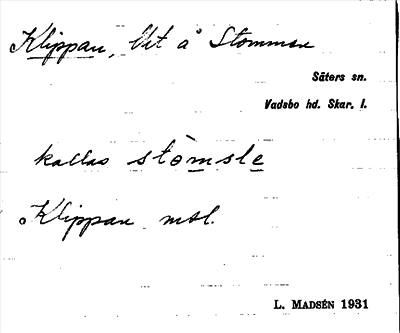 Klippan, Vit å Stommen
Säters sn.
Vadsbo hd. Skar. l.
kallas stòmsle
Klippan msl.
L. MADSÉN 1931